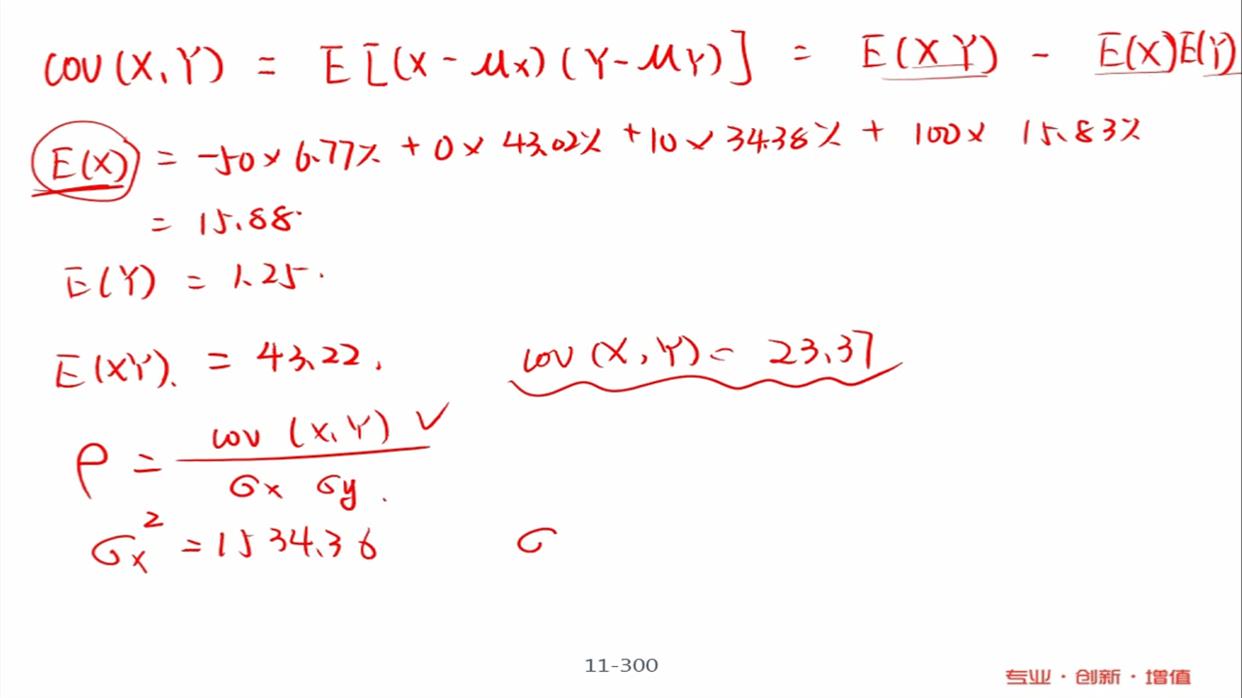 cov(X,Y) = E[(X-μx)(Y-μY)] = E(XY) - E(X)E(Y)
E(X) = -50×6.77% + 0×43.02% + 10×34.38% + 100× 15.83%
= 15.88.
E(Y) = 1.25.
E(XY). = 43.22. cov(X,Y) = 23.37
ρ = cov(X,Y) ✓ / σx σy.
σx² = 1534.36 σ
11-300
专业·创新·增值